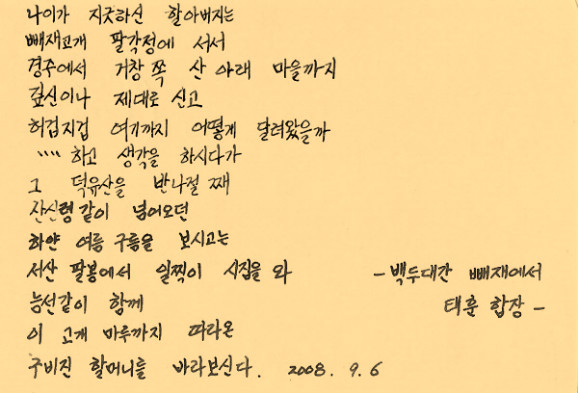 나이가 지긋하신 할아버지는
빼재고개 팔각정에 서서
경주에서 거창쪽 산 아래 마을까지
짚신이나 제대로 신고
허겁지겁 여기까지 어떻게 달려왔을까
···· 하고 생각을 하시다가
그 덕유산을 반나절 째
산신령같이 넘어오던
하얀 여름 구름을 보시고는
서산 팔봉에서 일찍이 시집을 와
능선같이 함께
이 고개 마루까지 따라온
구비진 할머니를 바라보신다. 2008. 9. 6
- 백두대간 빼재에서
태훈 합장 -